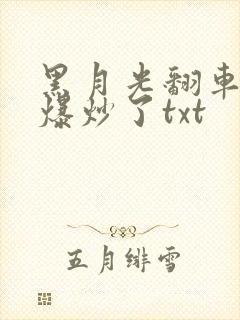 黑月光翻車
爆炒了txt
五月緋雪